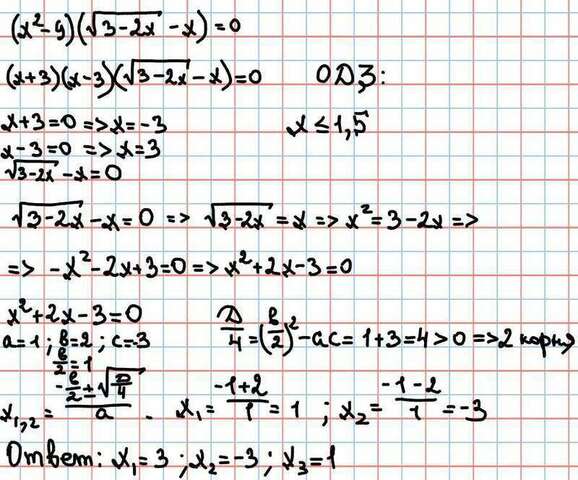 (x²-9)(√(3-2x) -x)=0
(x+3)(x-3)(√(3-2x) -x)=0 ОДЗ:
x+3=0 => x=-3 x ≤ 1,5
x-3=0 => x=3
√(3-2x) -x=0
√(3-2x) -x=0 => √(3-2x) =x => x²=3-2x =>
=> -x²-2x+3=0 => x²+2x-3=0
x²+2x-3=0 Д/4=(в/2)²-ac=1+3=4>0 =>2 корня
a=1; в=2; c=-3
в/2=1
x₁,₂= (-в/2±√(Д/4))/a . x₁= (-1+2)/1=1 ; x₂= (-1-2)/1=-3
Ответ: x₁=3; x₂=-3; x₃=1